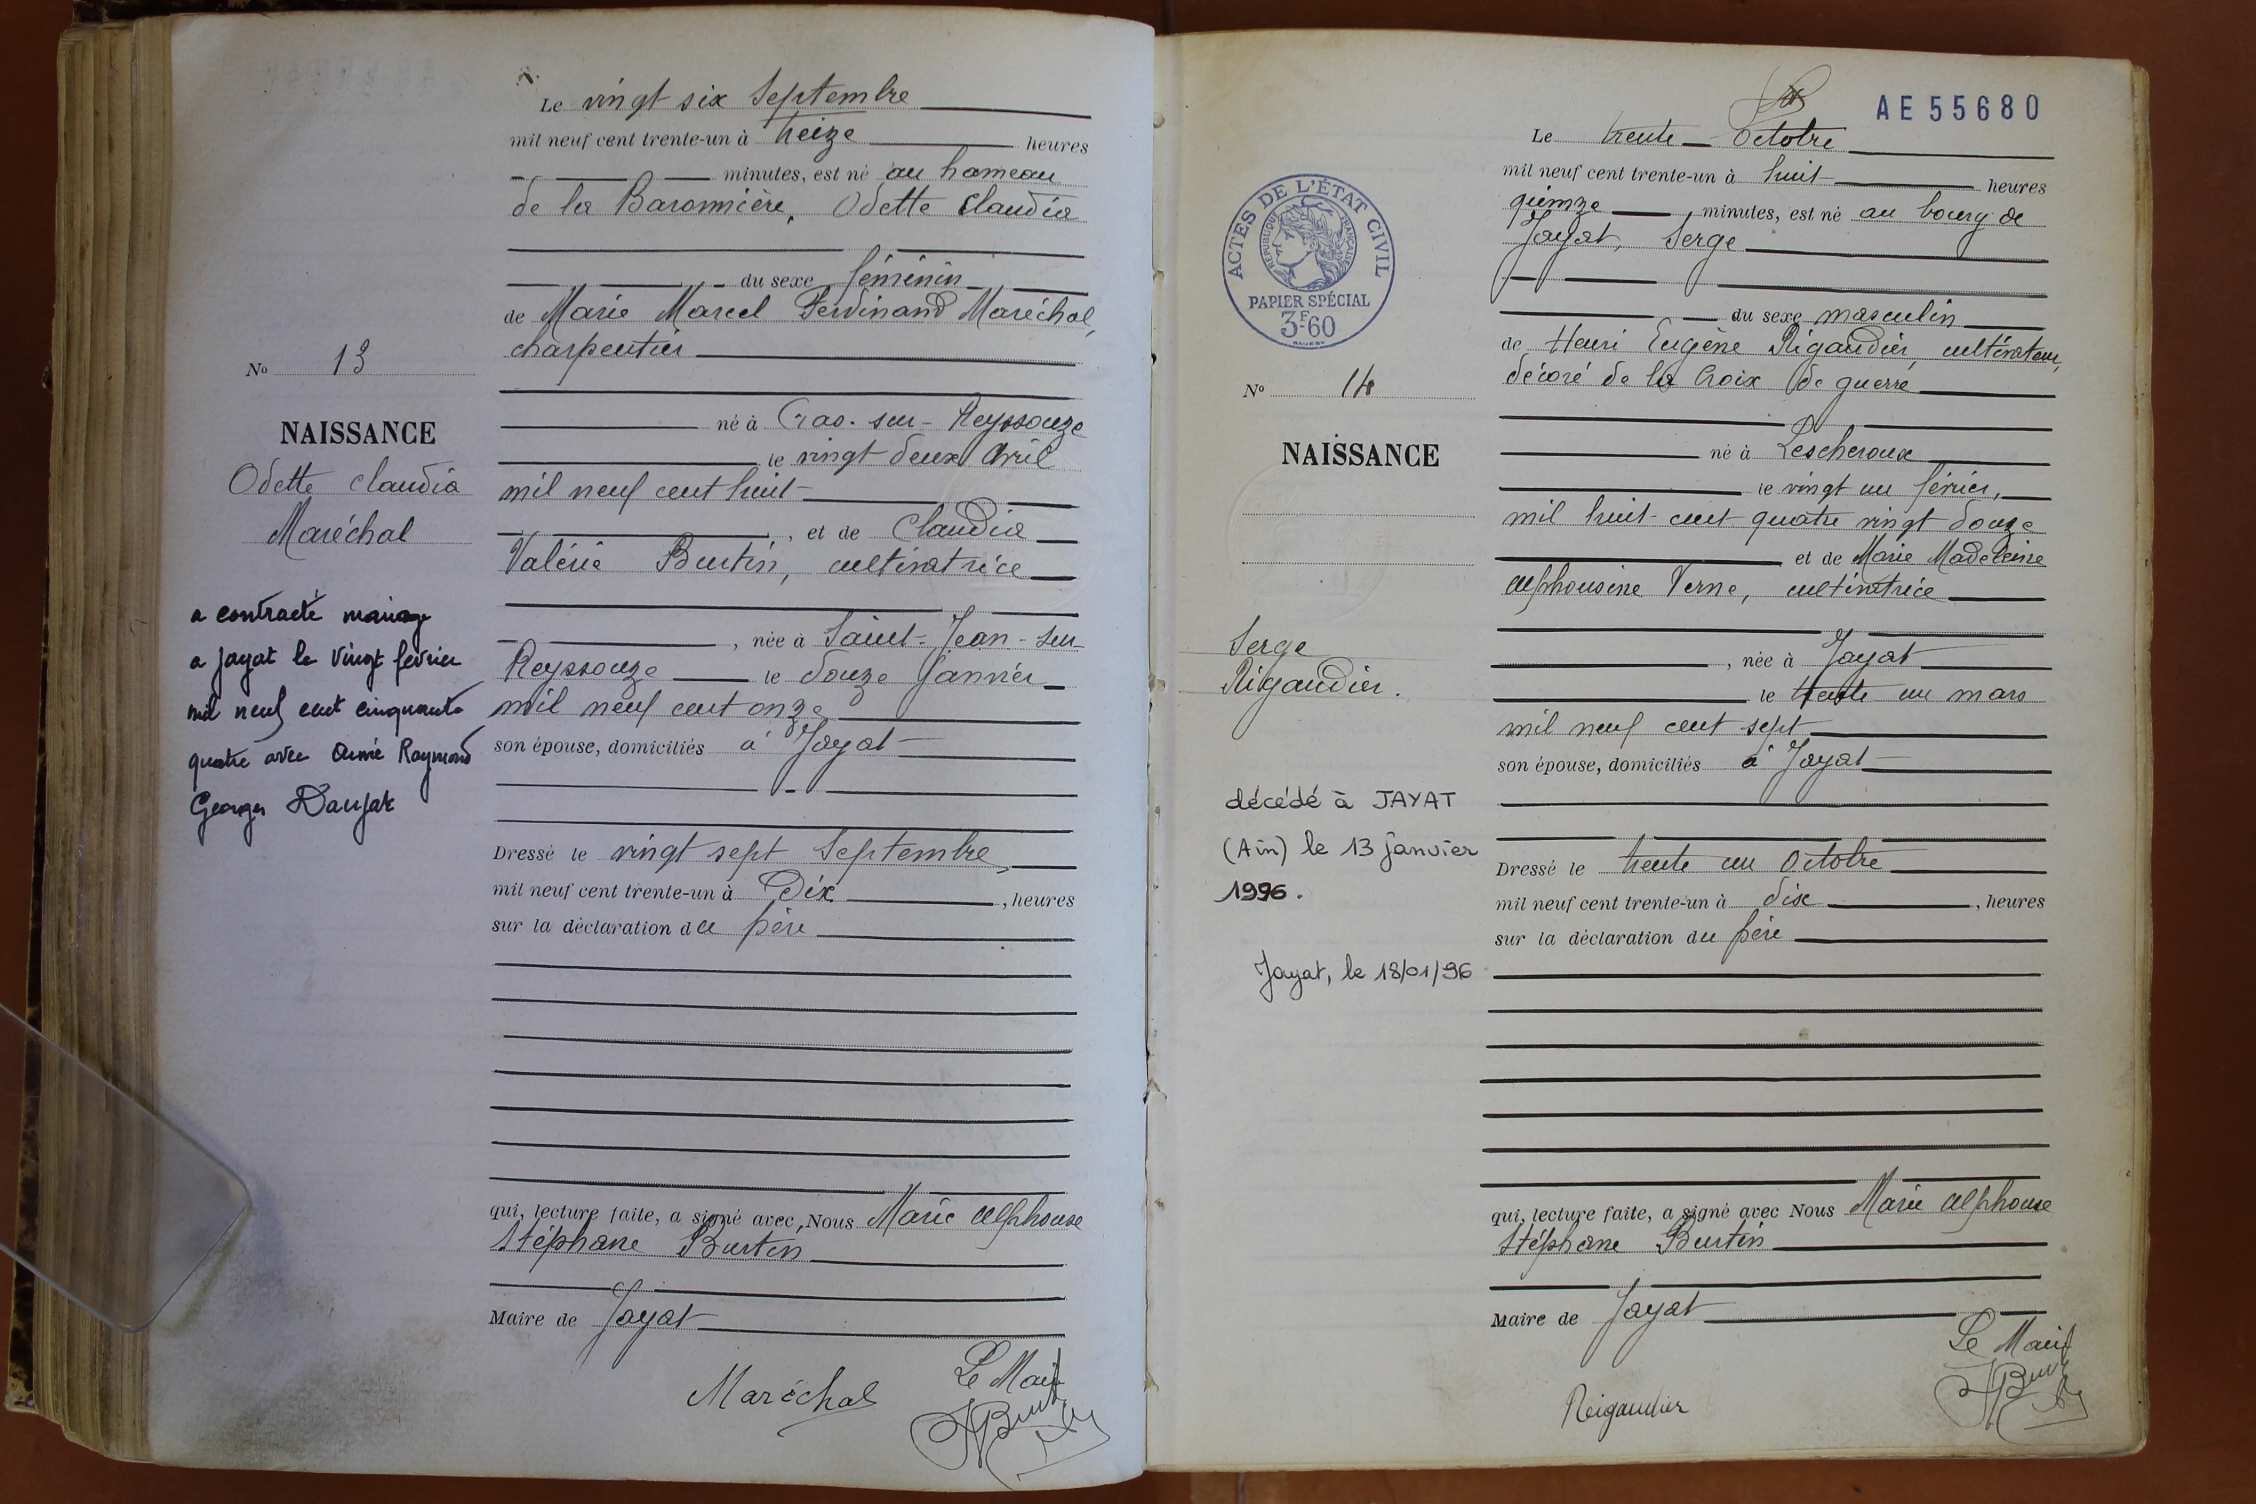 Le vingt six Septembre
mil neuf cent trente-un à treize heures
minutes, est né au hameau
de la Baronnière, Odette Claudia
du sexe féminin
de Marie Marcel Ferdinand Maréchal,
charpentier
né à Cras-sur-Reyssouze
le vingt deux Avril
mil neuf cent huit
, et de Claudia
Valérie Burtin, cultivatrice
, née à Saint-Jean-sur-
Reyssouze le douze Janvier
mil neuf cent onze
son épouse, domiciliés à Jayat
Dressé le vingt sept Septembre
mil neuf cent trente-un à Dix, heures
sur la déclaration du père
qui, lecture faite, a signé avec Nous Marie Alphonse
Stéphane Burtin
Maire de Jayat
Maréchal
Le Maire
Burtin
No 13
NAISSANCE
Odette Claudia
Maréchal
a contracté mariage
a Jayat le vingt février
mil neuf cent cinquante
quatre avec Aimé Raymond
Georges Daujat
AE 55680
Le trente Octobre
mil neuf cent trente-un à huit heures
quinze minutes, est né au bourg de
Jayat, Serge
du sexe masculin
de Henri Eugène Rigaudier, cultivateur,
décoré de la Croix de guerre
né à Lescheroux
le vingt un février,
mil huit cent quatre vingt douze
et de Marie Madeleine
Alphonsine Verne, cultivatrice
, née à Jayat
le trente un mars
mil neuf cent sept
son épouse, domiciliés à Jayat
Dressé le trente un Octobre
mil neuf cent trente-un à dix, heures
sur la déclaration du père
qui, lecture faite, a signé avec Nous Marie Alphonse
Stéphane Burtin
Maire de Jayat
Le Maire
Burtin
Reigaudier
ACTES DE L'ÉTAT CIVIL
RÉPUBLIQUE FRANÇAISE
PAPIER SPÉCIAL
3F60
No 14
NAISSANCE
Serge
Rigaudier.
décédé à JAYAT
(Ain) le 13 janvier
1996.
Jayat, le 18/01/96